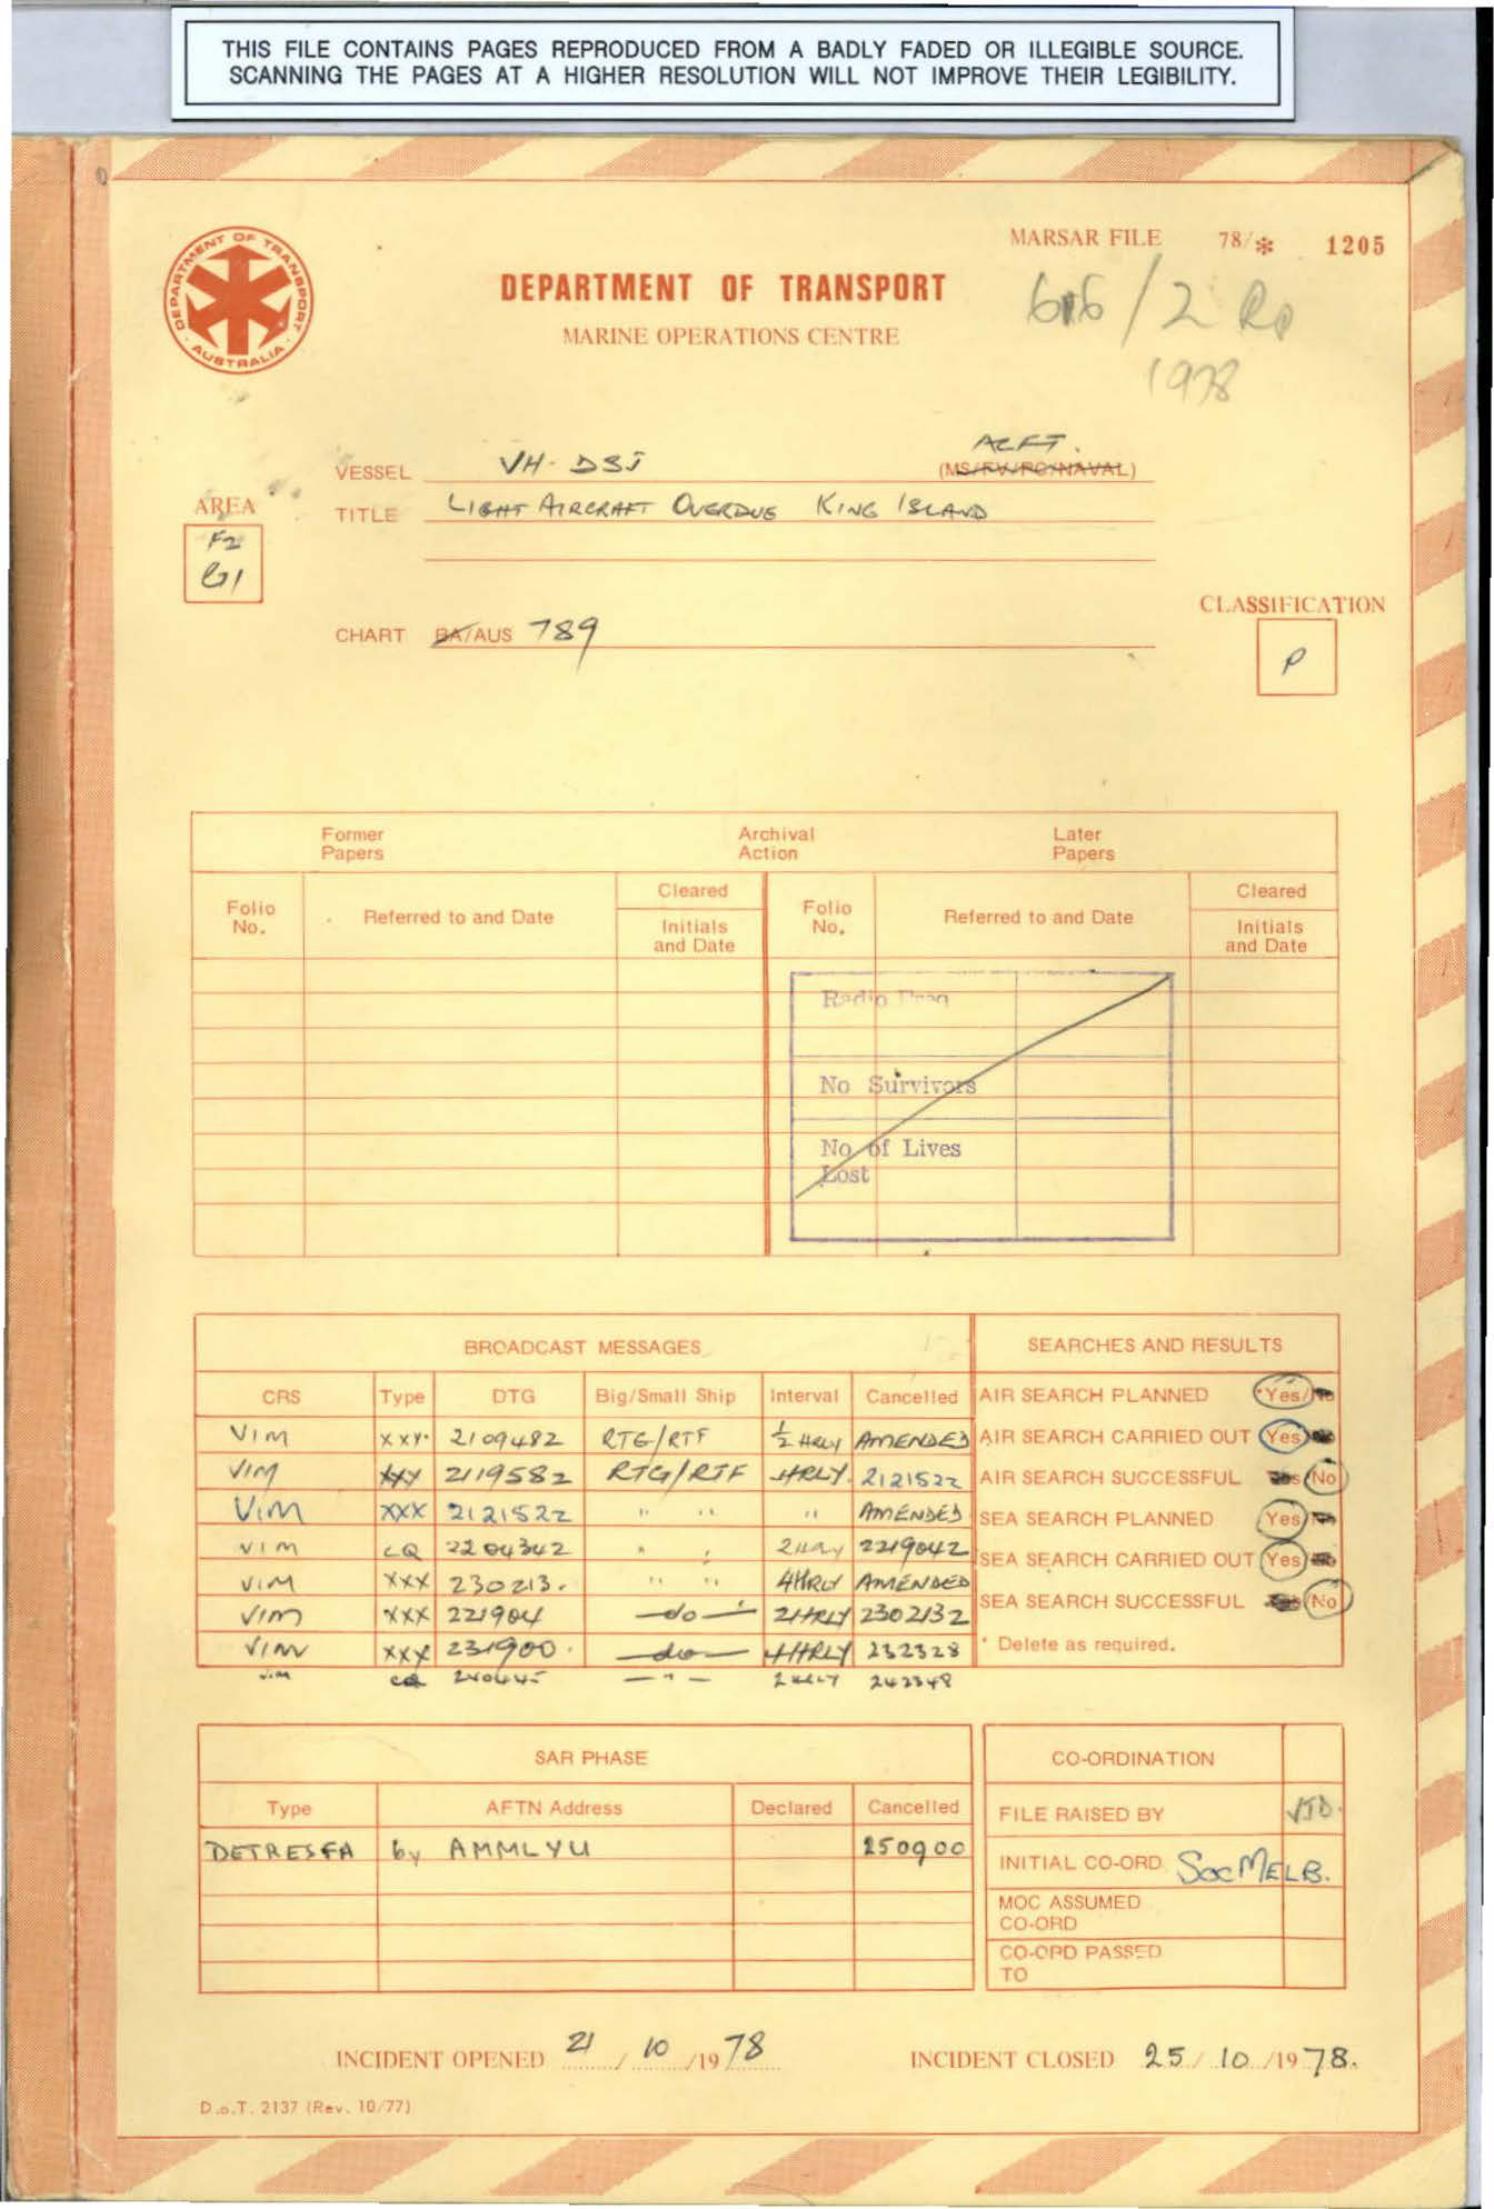 THIS FILE CONTAINS PAGES REPRODUCED FROM A BADLY FADED OR ILLEGIBLE SOURCE.
SCANNING THE PAGES AT A HIGHER RESOLUTION WILL NOT IMPROVE THEIR LEGIBILITY.
DEPARTMENT OF TRANSPORT
AUSTRALIA
MARSAR FILE 78/* 1205
DEPARTMENT OF TRANSPORT
MARINE OPERATIONS CENTRE
616/2
1978
ACFT.
VESSEL VH-DSJ (MS/FV/PC/NAVAL)
AREA
TITLE LIGHT AIRCRAFT OVERDUE KING ISLAND
F2
G1
CLASSIFICATION
CHART BA/AUS 789
P
Former Papers Archival Action Later Papers
Folio No. Referred to and Date Cleared Initials and Date Folio No. Referred to and Date Cleared Initials and Date
Radio Freq
No Survivors
No of Lives
Lost
BROADCAST MESSAGES SEARCHES AND RESULTS
CRS Type DTG Big/Small Ship Interval Cancelled AIR SEARCH PLANNED *Yes/No
VIM XXX 210948Z RTG/RTF ½ HRLY AMENDED AIR SEARCH CARRIED OUT Yes
VIM XXX 211958Z RTG/RTF HRLY. 212152Z AIR SEARCH SUCCESSFUL Yes/No
VIM XXX 212152Z " " " AMENDED SEA SEARCH PLANNED Yes
VIM CQ 220434Z " " 2HRLY 221904Z SEA SEARCH CARRIED OUT Yes
VIM XXX 230213. " " 4HRLY AMENDED
VIM XXX 221904 —do— 2HRLY 230213Z SEA SEARCH SUCCESSFUL No
VIM XXX 231900. —do— 4HRLY 232328 * Delete as required.
VIM CQ 240445 — " — 2HRLY 242348
SAR PHASE CO-ORDINATION
Type AFTN Address Declared Cancelled FILE RAISED BY
DETRESFA by AMMLYU 250900 INITIAL CO-ORD. SOC MELB.
MOC ASSUMED
CO-ORD
CO-ORD PASSED
TO
INCIDENT OPENED 21/10/1978 INCIDENT CLOSED 25/10/1978.
D.o.T. 2137 (Rev. 10/77)